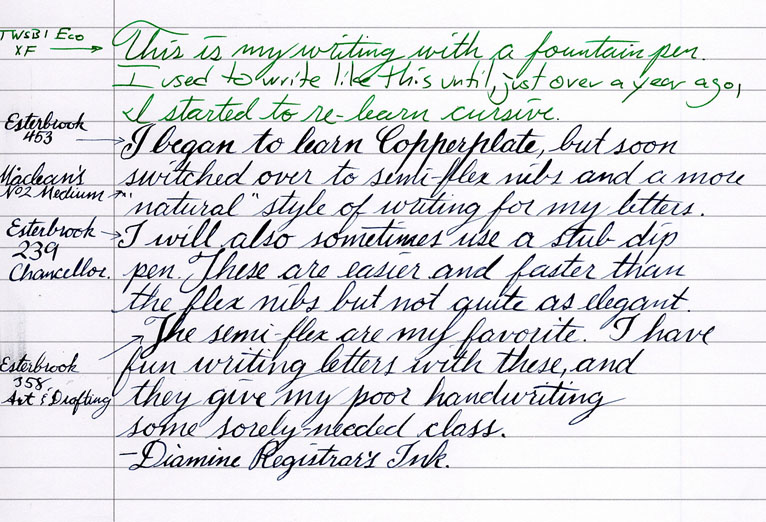 TWSBI Eco
XF
This is my writing with a fountain pen.
I used to write like this until, just over a year ago,
I started to re-learn cursive.
Esterbrook
453
I began to learn Copperplate, but soon
switched over to semi-flex nibs and a more
Maclean's
Nº2 Medium
"natural" style of writing for my letters.
Esterbrook
239
Chancellor.
I will also sometimes use a stub dip
pen. These are easier and faster than
the flex nibs but not quite as elegant.
The semi-flex are my favorite. I have
Esterbrook
358
Art & Drafting
fun writing letters with these, and
they give my poor handwriting
some sorely-needed class.
-Diamine Registrar's Ink.